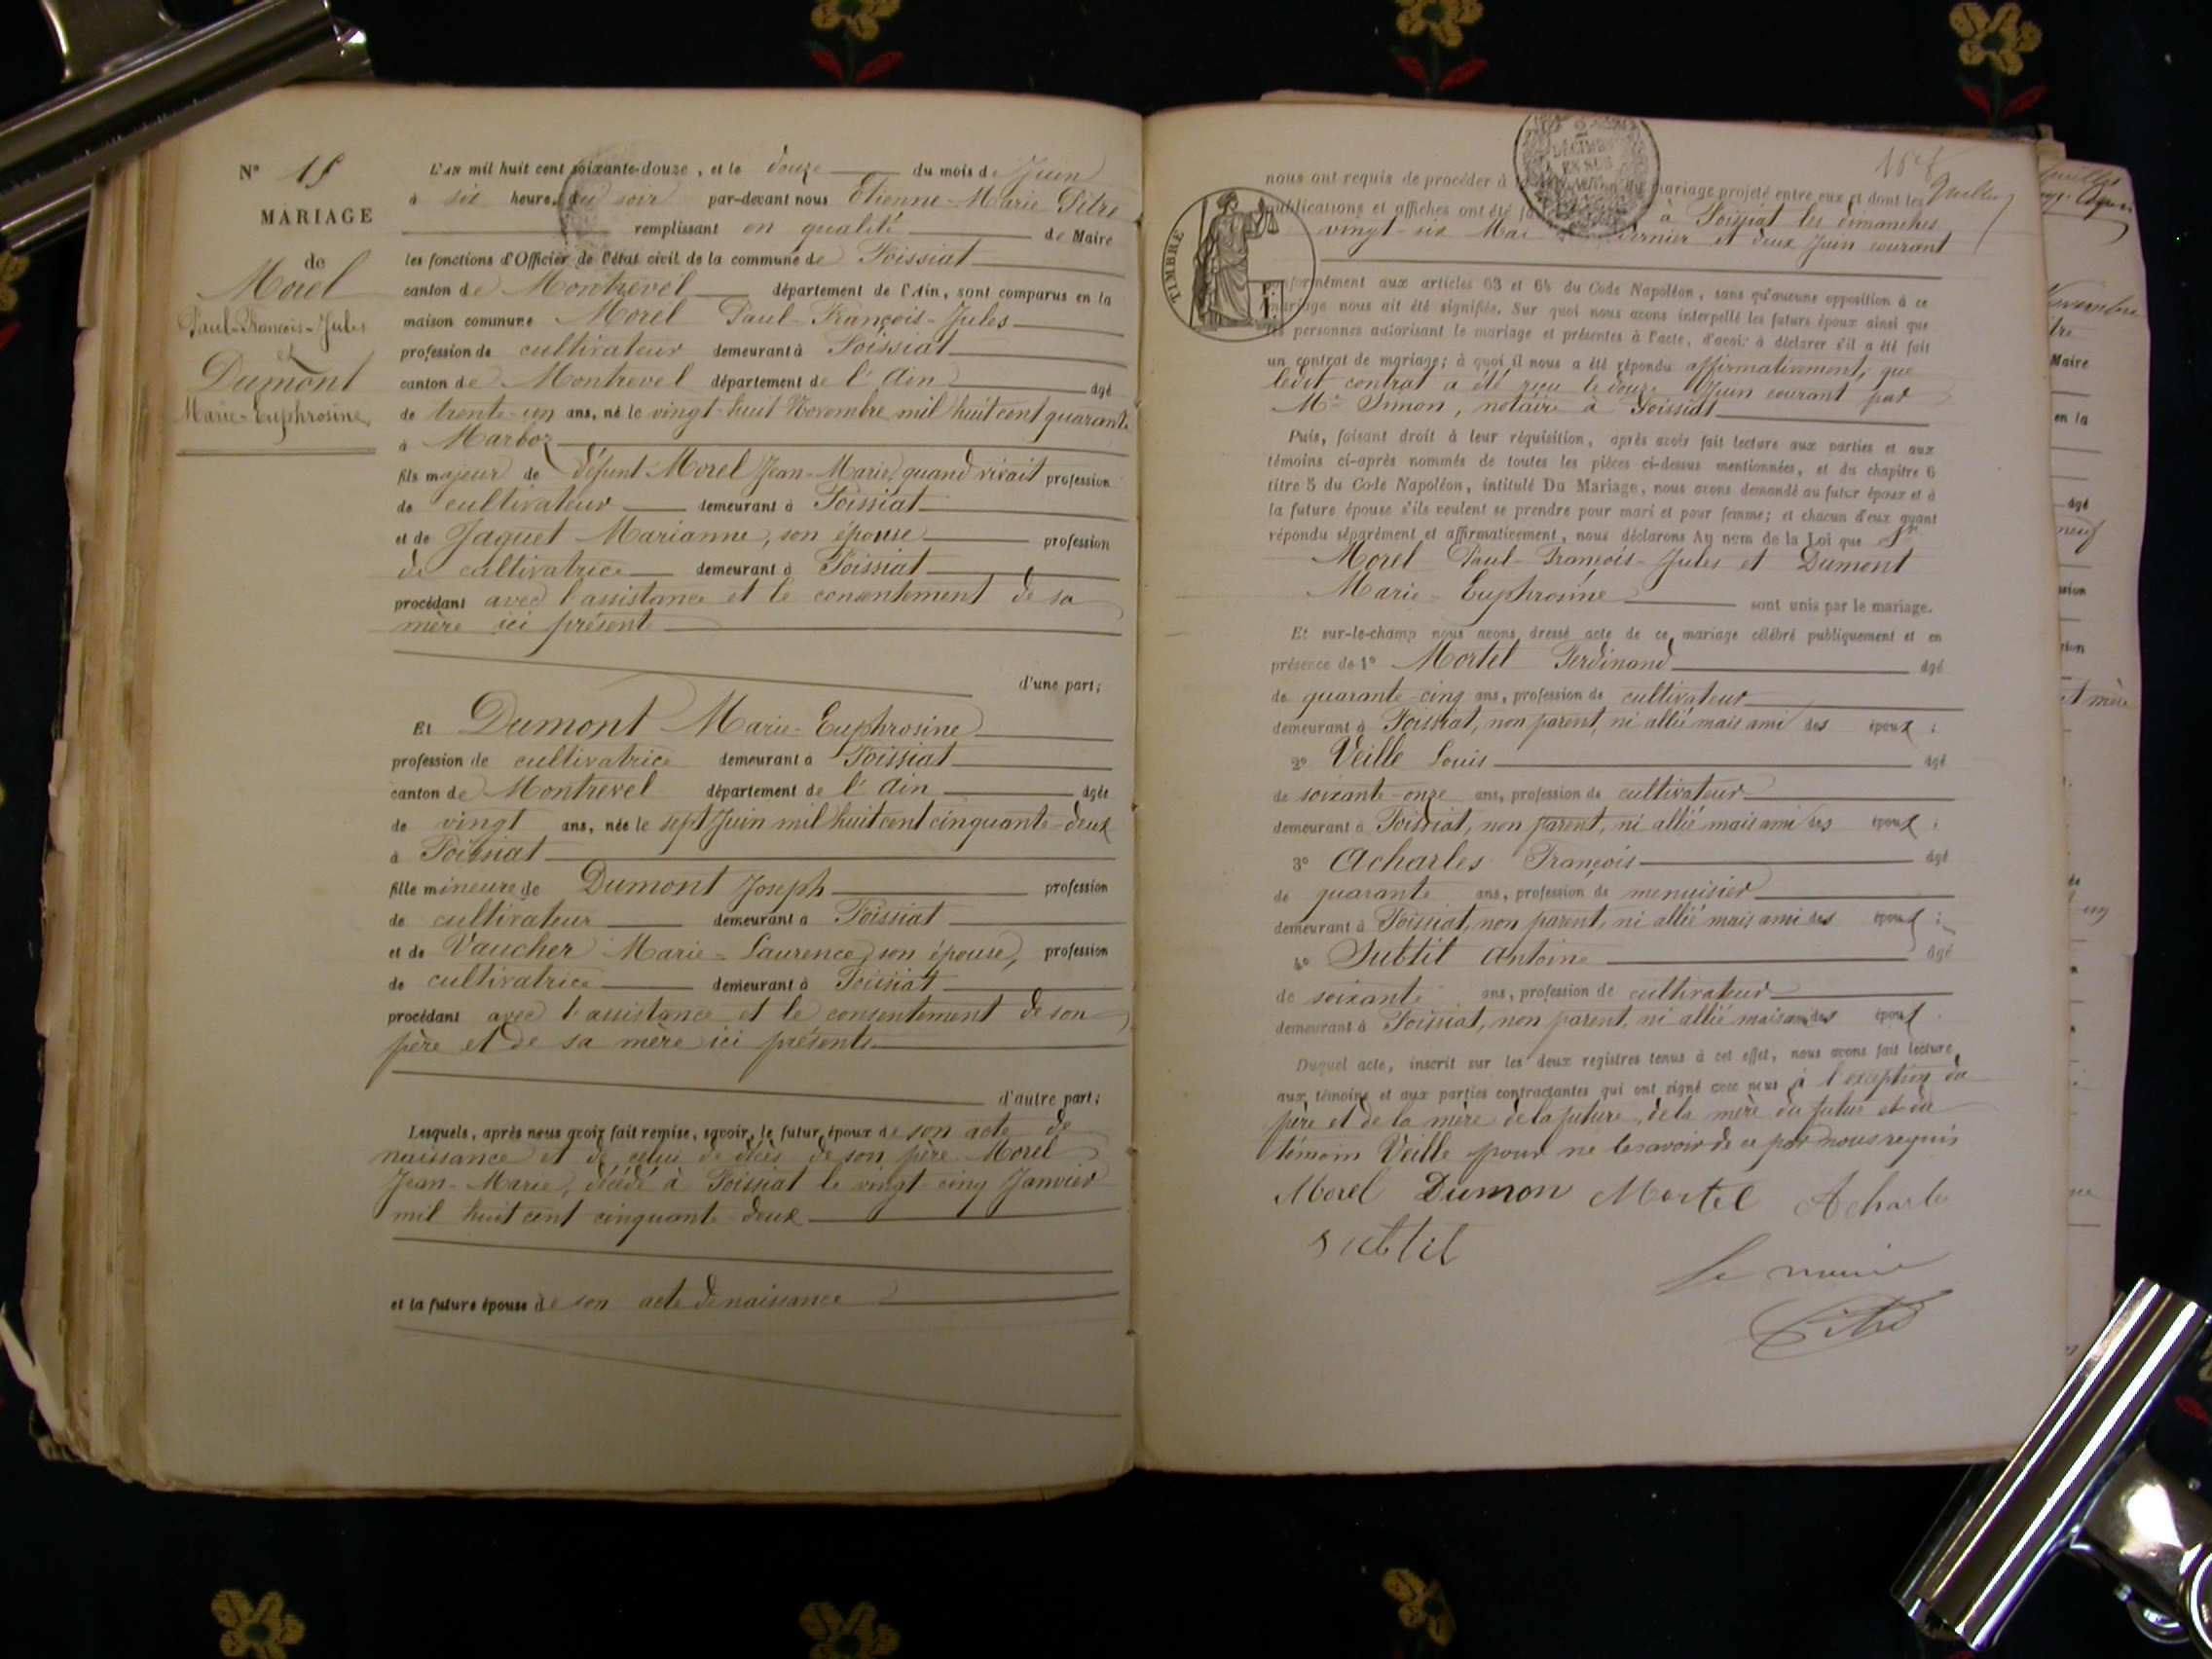 N° 15
MARIAGE
de
Morel
Paul-François-Jules
et
Dumont
Marie-Euphrosine
L'AN mil huit cent soixante-douze, et le douze du mois de Juin
à six heures du soir par-devant nous Etienne-Marie Pitre
remplissant en qualité de Maire
les fonctions d'Officier de l'état civil de la commune de Foissiat
canton de Montrevel département de l'Ain, sont comparus en la
maison commune Morel Paul-François-Jules
profession de cultivateur demeurant à Foissiat
canton de Montrevel département de l'Ain âgé
de trente-un ans, né le vingt-huit Novembre mil huit cent quarante
à Marboz
fils majeur de défunt Morel Jean-Marie, quand vivait profession
de cultivateur demeurant à Foissiat
et de Jaquet Marianne, son épouse profession
de cultivatrice demeurant à Foissiat
procédant avec l'assistance et le consentement de sa
mère ici présent
d'une part;
Et Dumont Marie-Euphrosine
profession de cultivatrice demeurant à Foissiat
canton de Montrevel département de l'Ain âgée
de vingt ans, née le sept Juin mil huit cent cinquante-deux
à Foissiat
fille mineure de Dumont Joseph profession
de cultivateur demeurant à Foissiat
et de Vaucher Marie-Laurence, son épouse, profession
de cultivatrice demeurant à Foissiat
procédant avec l'assistance et le consentement de son
père et de sa mère ici présents
d'autre part;
Lesquels, après nous avoir fait remise, savoir, le futur époux de son acte de
naissance et de celui de décès de son père Morel
Jean-Marie, décédé à Foissiat le vingt-cinq Janvier
mil huit cent cinquante-deux
et la future épouse de son acte de naissance
2
DÉCIMES
EN SUS
TIMBRE
nous ont requis de procéder à la du mariage projeté entre eux et dont les
publications et affiches ont été à Foissiat les dimanches
vingt-six Mai dernier et deux Juin courant
conformément aux articles 63 et 64 du Code Napoléon, sans qu'aucune opposition à ce
mariage nous ait été signifiée. Sur quoi nous avons interpellé les futurs époux ainsi que
les personnes autorisant le mariage et présentes à l'acte, d'avoir à déclarer s'il a été fait
un contrat de mariage; à quoi il nous a été répondu affirmativement, que
ledit contrat a été reçu le douze Juin courant par
Me Simon, notaire à Foissiat
Puis, faisant droit à leur réquisition, après avoir fait lecture aux parties et aux
témoins ci-après nommés de toutes les pièces ci-dessus mentionnées, et du chapitre 6
titre 5 du Code Napoléon, intitulé Du Mariage, nous avons demandé au futur époux et à
la future épouse s'ils veulent se prendre pour mari et pour femme; et chacun d'eux ayant
répondu séparément et affirmativement, nous déclarons Au nom de la Loi que
Morel Paul-François-Jules et Dumont
Marie-Euphrosine sont unis par le mariage.
Et sur-le-champ nous avons dressé acte de ce mariage célébré publiquement et en
présence de 1° Mortel Ferdinand âgé
de quarante-cinq ans, profession de cultivateur
demeurant à Foissiat, non parent, ni allié mais ami des époux;
2° Veille Louis âgé
de soixante-onze ans, profession de cultivateur
demeurant à Foissiat, non parent, ni allié mais ami des époux;
3° Acharles François âgé
de quarante ans, profession de menuisier
demeurant à Foissiat, non parent, ni allié mais ami des époux;
4° Subtil Antoine âgé
de soixante ans, profession de cultivateur
demeurant à Foissiat, non parent, ni allié mais ami des époux
Duquel acte, inscrit sur les deux registres tenus à cet effet, nous avons fait lecture
aux témoins et aux parties contractantes qui ont signé avec nous à l'exception du
père et de la mère de la future, de la mère du futur et du
témoin Veille pour ne le savoir de ce par nous requis
Morel Dumon Mortel Acharle
subtil
le maire
Pitre
Maire
en la
âgé
et mère